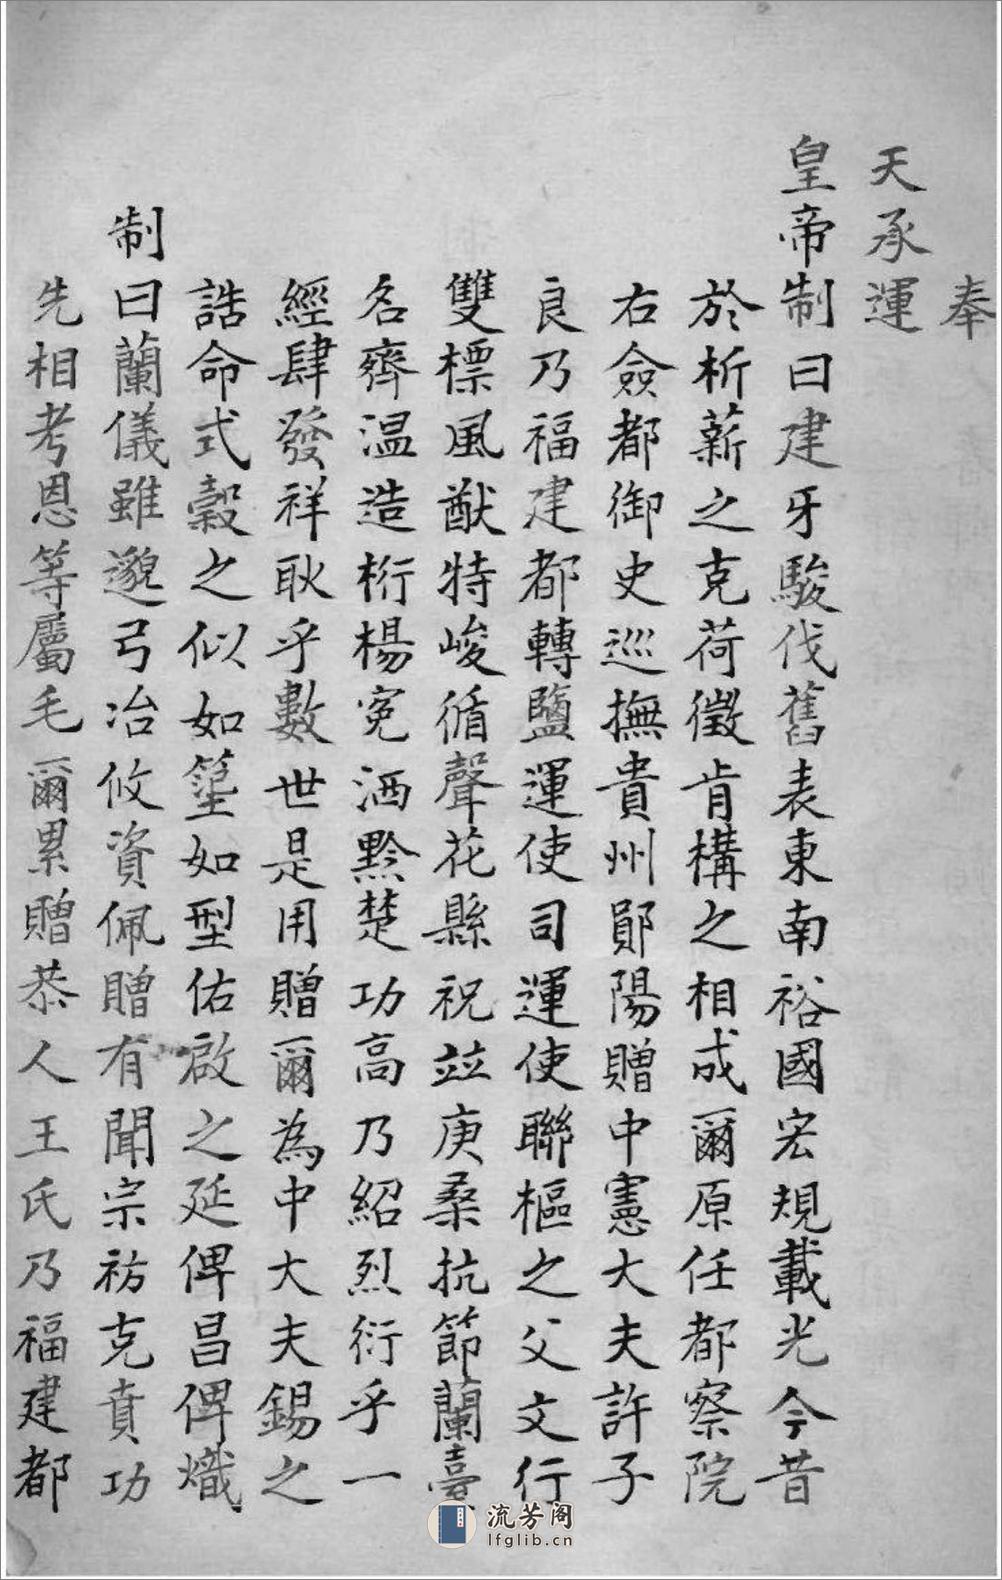 奉
天承運
皇帝制曰建牙駿伐舊表東南裕國宏規載光今昔
於析薪之克荷徵肯構之相成爾原任都察院
右僉都御史巡撫貴州鄖陽贈中憲大夫許子
良乃福建都轉鹽運使司運使聯樞之父文行
雙標風猷特峻循聲花縣祝竝庚桑抗節蘭臺
名齊温造桁楊寃洒黔楚功高乃紹烈衍乎一
經肆發祥耿乎數世是用贈爾為中大夫錫之
誥命式穀之似如篁如型佑啟之延俾昌俾熾
制曰蘭儀雖邈弓冶攸資佩贈有聞宗祊克賁功
先相考恩等屬毛爾累贈恭人王氏乃福建都
流芳阁
lfglib.cn